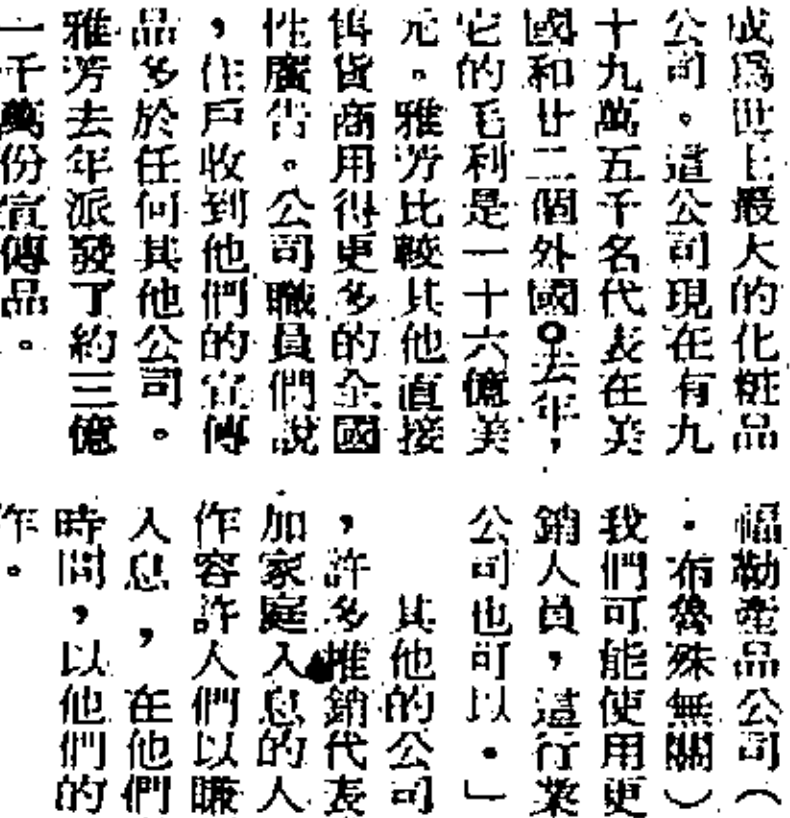 成爲世上最大的化粧品
公司。這公司現在有九
十九萬五千名代表在美
國和廿二個外國。去年，
它的毛利是一十六億美
元。雅芳比較其他直接
售貨商用得更多的全國
性廣告。公司職員們說
，住戶收到他們的宣傳
品多於任何其他公司。
雅芳去年派發了約三億
一千萬份宣傳品。
福勒產品公司（
·布魯殊無關）
我們可能使用更
銷人員，這行業
公司也可以·」
其他的公司
，許多推銷代表
加家庭入息的人
作容許人們以賺
入息，在他們
時間，以他們的
作。